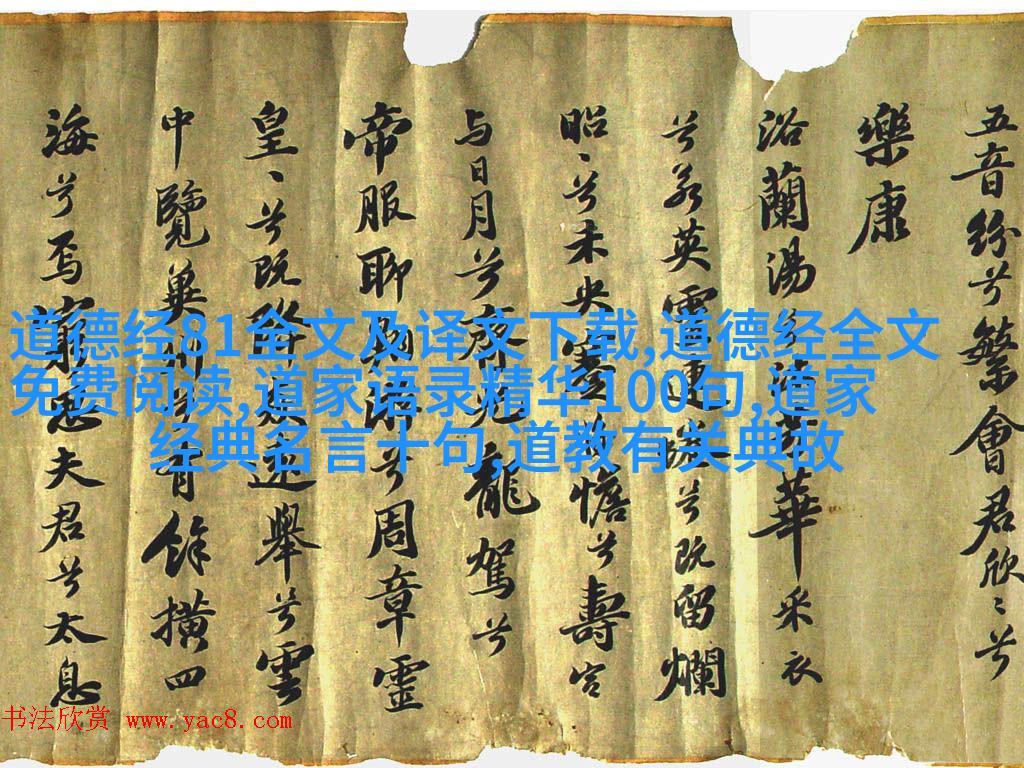 五音紛兮繁會君欣〻兮
樂康
浴蘭湯兮沐芳華采衣
兮若英靈連蜷兮既留爛
昭〻兮未央蹇將憺兮壽宮
与日月兮齊光龍駕兮
帝服聊翱游兮周章靈
皇〻兮既降猋遠舉兮雲
中覽冀州兮有餘橫四
海兮焉窮思夫君兮太息
道德经81全文及译文下载,道德经全文
免费阅读,道家语录精华100句,道家
经典名言十句,道教有关典故
书法欣赏 www.yac8.com